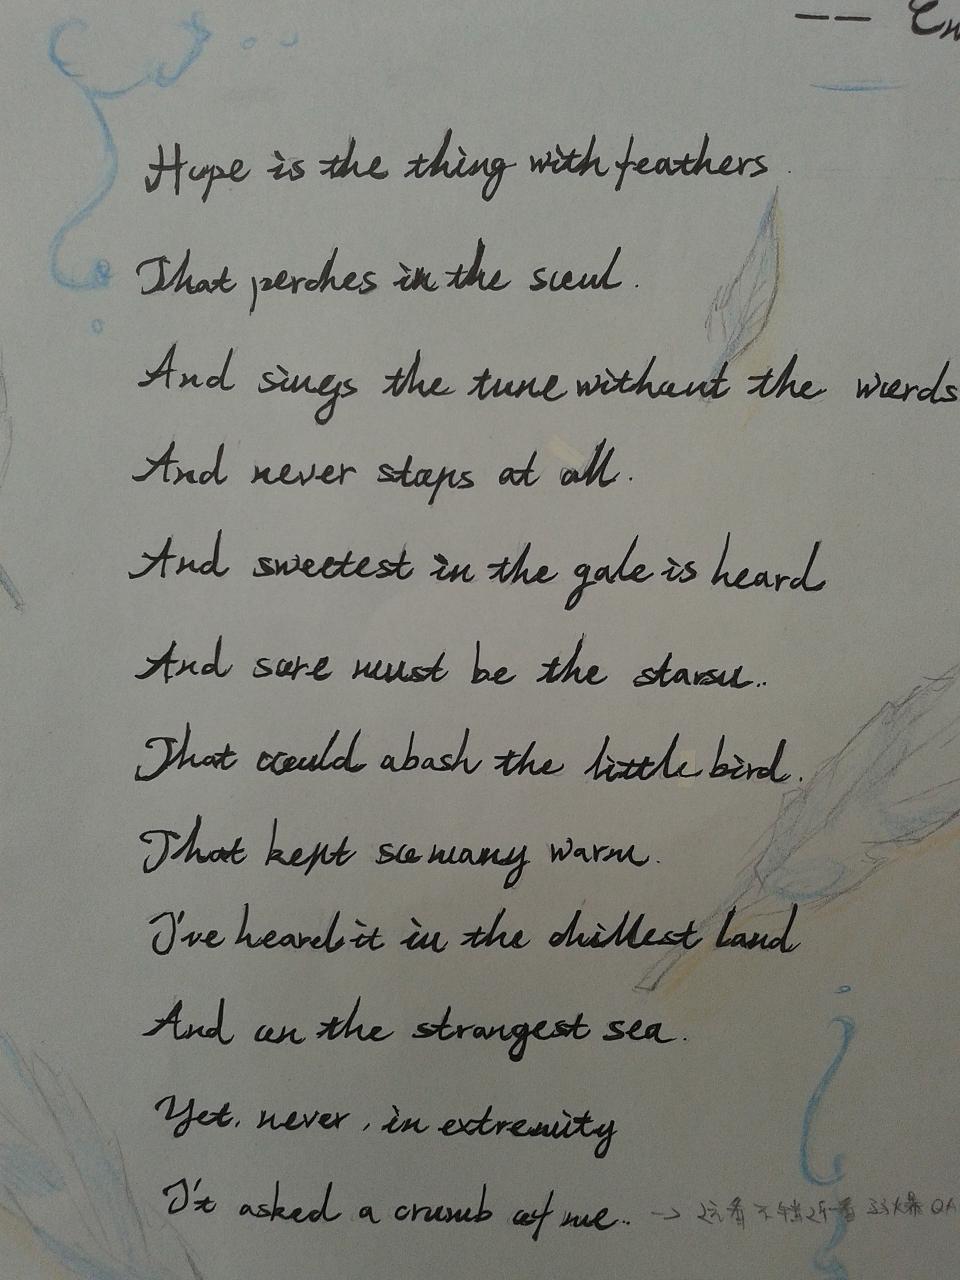 -- Em
Hope is the thing with feathers.
That perches in the soul.
And sings the tune without the words
And never stops at all.
And sweetest in the gale is heard
And sore must be the storm..
That could abash the little bird.
That kept so many warm.
I've heard it in the chillest land
And on the strangest sea.
Yet, never, in extremity
It asked a crumb of me.. → 远看不错近看 QA